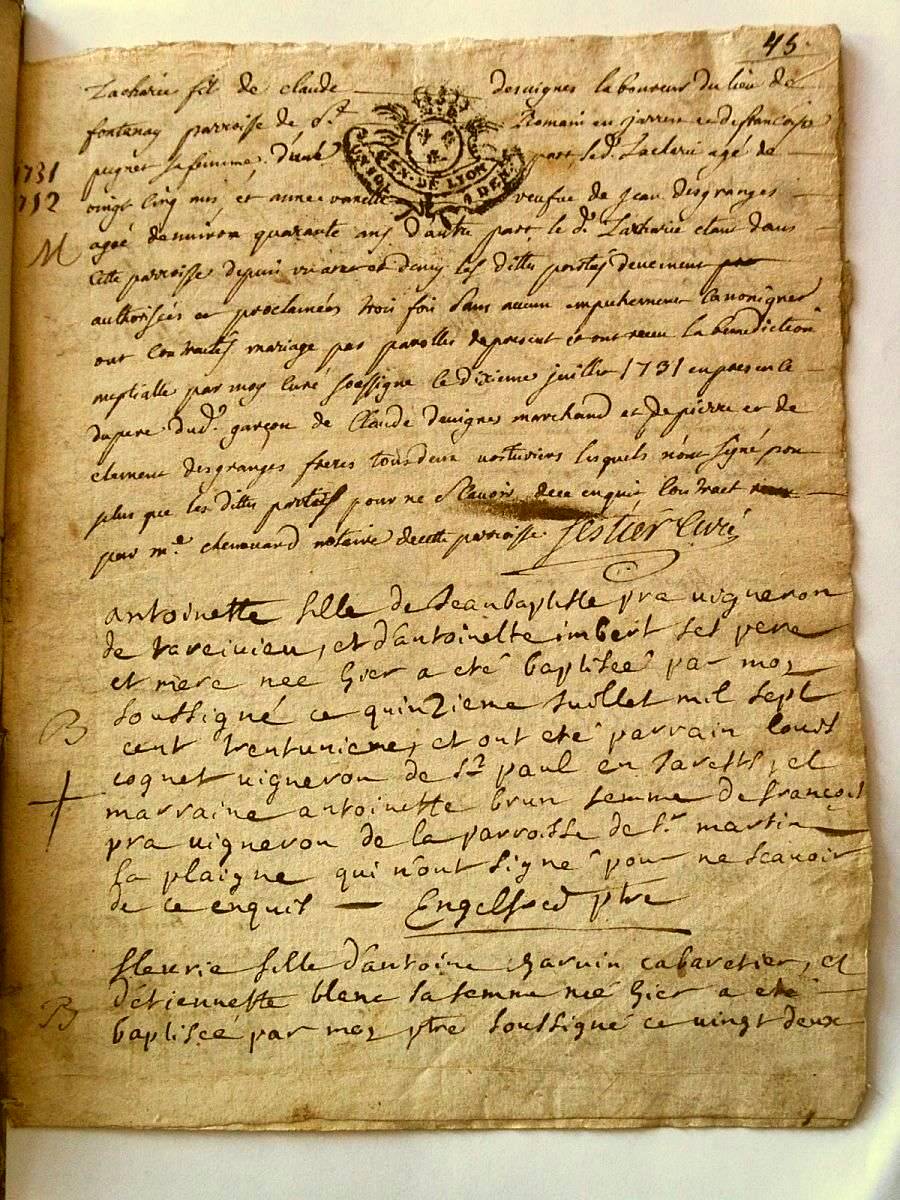 45.
Zacharie fils de claude desuignes laboureur du lieu de
fontenay parroisse de St Romain en jarrest et de francoise
peyret sa femme, d'une part, led. Zacharie agé de
GEN. DE LION
1731
vingt cinq ans, et anne veufue de jean desgranges
1732
agée denuiron quarante ans d'autre part le d. Zacharie etant dans
M
cette parroisse depuis un an et demy les dittes parties deuement
authorisées et proclamées trois fois sans aucun empechement canonique
ont contracté mariage par parolles de present et ont receu la benediction
nuptialle par moy curé soussigné le dixieme juillet 1731 en presence
du pere dud. garçon de Claude deuignes marchand et de pierre et de
clement desgranges freres tous deux voituriers lesquels n'ont signé non
plus que les dittes parties pour ne scauoir de ce enquis contract
par me. chenouard notaire de cette parroisse. Jestier Curé
antoinette fille de Jean baptiste pra uigneron
de tareiuieu, et d'antoinette imbert ses pere
et mere nee hier a eté baptiseé par moy
B
soussigné ce quinzieme Juillet mil sept
cent trentunieme, et ont eté parrain louis
coqnet uigneron de St. paul en Jarests, et
marraine antoinette brun femme de françois
pra uigneron de la parroisse de St. martin
la plaigne qui n'ont signé pour ne scauoir
de ce enquis — ptre
fleurie fille d'antoine garuin cabaretier, et
B
d'etiennette blanc sa femme neé hier a eté
baptiseé par moy ptre soussigné ce uingt deux